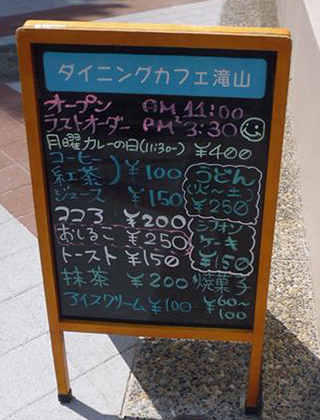 ダイニングカフェ滝山
オープン AM 11:00
ラストオーダー PM 3:30
月曜カレーの日(11:30~) ¥400
コーヒー
紅茶 ¥100
ジュース ¥150
ココア ¥200
おしるこ ¥250
トースト ¥150
抹茶 ¥200
アイスクリーム ¥100
うどん
(火~土)
¥250
シフォン
ケーキ
¥150
焼菓子
¥60~
100